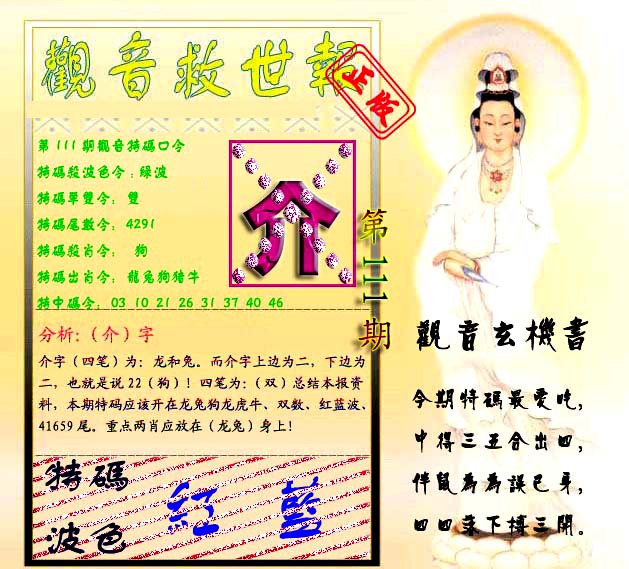 觀音救世報
正版
第111期觀音特碼口令
特碼殺波色令:綠波
特碼單雙令: 雙
特碼尾數令: 4291
特碼殺肖令: 狗
特碼出肖令: 龍兔狗猪牛
特中碼令: 03 10 21 26 31 37 40 46
介
第111期
分析:(介)字
介字(四笔)为: 龙和兔。而介字上边为二, 下边为
二, 也就是说 22(狗)! 四笔为:(双)总结本报资
料, 本期特码应该开在龙兔狗龙虎牛、双数、红蓝波、
41659 尾。重点两肖应放在(龙兔)身上!
特碼
波色
紅 藍
觀音玄機書
今期特碼最愛吃,
中得三五合出四,
伴鼠為為誤己身,
四四落下搏三開。